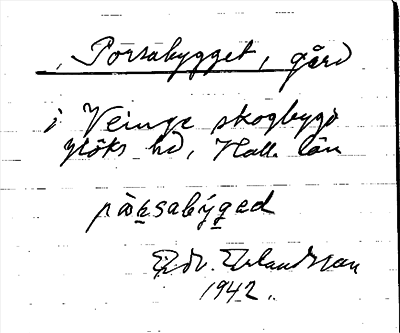 Porsabygget, gård
i Veinge skogbygd
Höks hd, Hall. län
pàrsabýged
Edv. Erlandsson
1942.